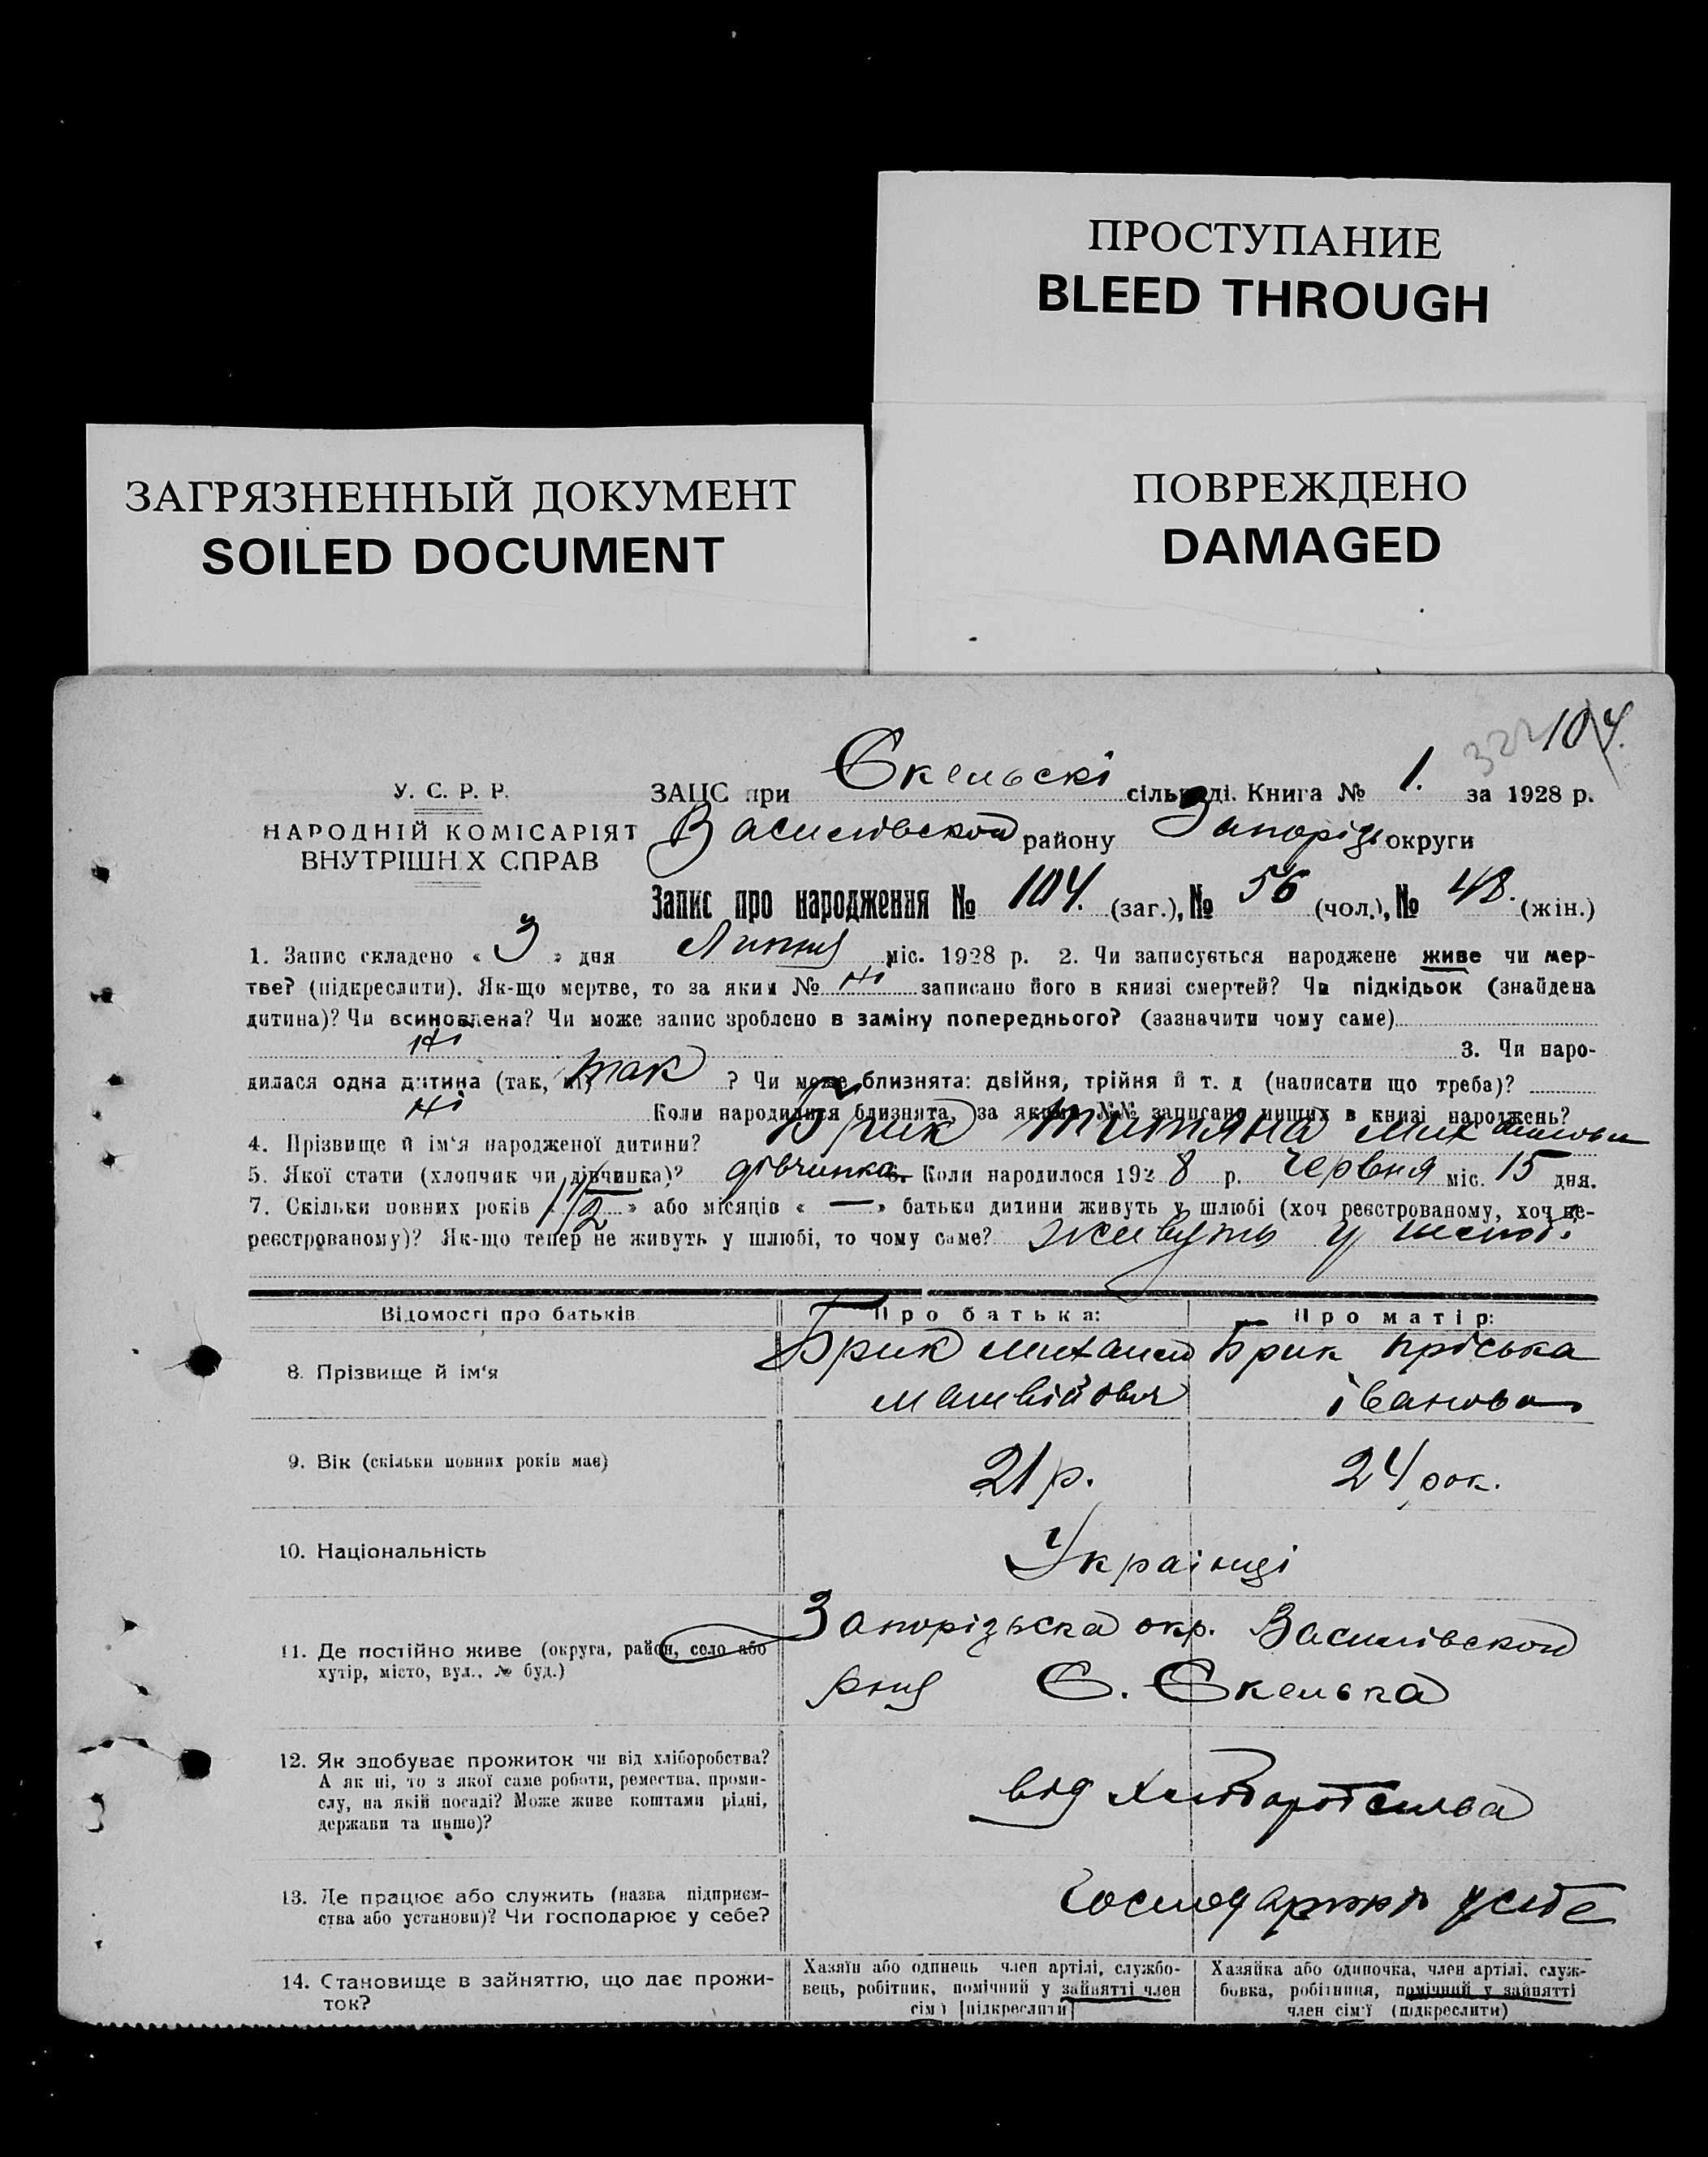 ПРОСТУПАНИЕ
BLEED THROUGH
ЗАГРЯЗНЕННЫЙ ДОКУМЕНТ
SOILED DOCUMENT
ПОВРЕЖДЕНО
DAMAGED
322 104.
У. С. Р. Р.
НАРОДНІЙ КОМІСАРІЯТ
ВНУТРІШНІХ СПРАВ
ЗАЦС при Скельскі сільраді. Книга № 1. за 1928 р.
Василівской району Запоріз округи
Запис про народження № 104. (заг.), № 56 (чол.), № 48. (жін.)
1. Запис складено « 3 » дня Липня міс. 1928 р. 2. Чи записується народжене живе чи мер-
тве? (підкреслити). Як-що мертве, то за яким № ні записано його в книзі смертей? Чи підкідьок (знайдена
дитина)? Чи всиновлена? Чи може запис зроблено в заміну попереднього? (зазначити чому саме)
ні 3. Чи наро-
дилася одна дитина (так, ні) так ? Чи може близнята: двійня, трійня й т. д (написати що треба)?
ні Коли народилися близнята, за якими №№ записано инших в книзі народжень?
4. Прізвище й ім‘я народженої дитини? Брик Титяна Михайлови
5. Якої стати (хлопчик чи дівчинка)? дівчинка 6. Коли народилося 1928 р. червня міс. 15 дня.
7. Скільки повних років « 1/2 » або місяців « — » батьки дитини живуть у шлюбі (хоч реєстрованому, хоч не-
реєстрованому)? Як-що тепер не живуть у шлюбі, то чому саме? живуть у шлюб.
Відомості про батьків Про батька: Про матір:
8. Прізвище й ім‘я Брик Михайло Брик Пріська
Матвійович івановна
9. Вік (скільки повних років має) 21 р. 24 рок.
10. Національність Українці
11. Де постійно живе (округа, район, село або Запорізьска окр. Василівской
хутір, місто, вул., № буд.) рню С. Скелька
12. Як здобуває прожиток чи від хліборобства?
А як ні, то з якої саме роботи, ремества, проми-
слу, на якій посаді? Може живе коштами рідні, від хліборобства
держави та инше)?
13. Де працює або служить (назва підприєм-
ства або установи)? Чи господарює у себе? Господарюють у себе
14. Становище в зайняттю, що дає прожи-
ток?
Хазяїн або одинець член артілі, службо-
вець, робітник, помічний у зайнятті член
сім'ї [підкреслити]
Хазяйка або одиночка, член артілі, служ-
бовка, робітниця, помічний у зайнятті
член сім'ї (підкреслити)